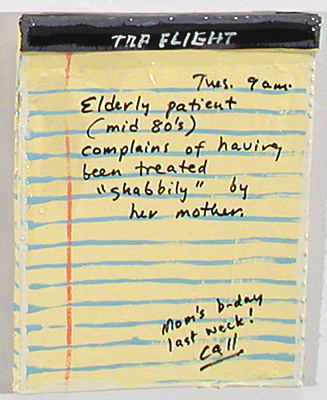 TOP FLIGHT
Tues. 9am.
Elderly patient
(mid 80's)
complains of having
been treated
"shabbily" by
her mother.
Mom's b-day
last week!
call